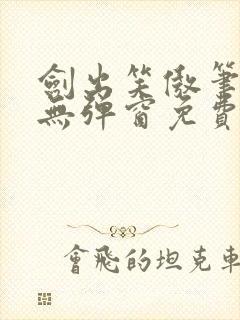 劍出笑傲筆
無彈窗免費
會飛的坦克車